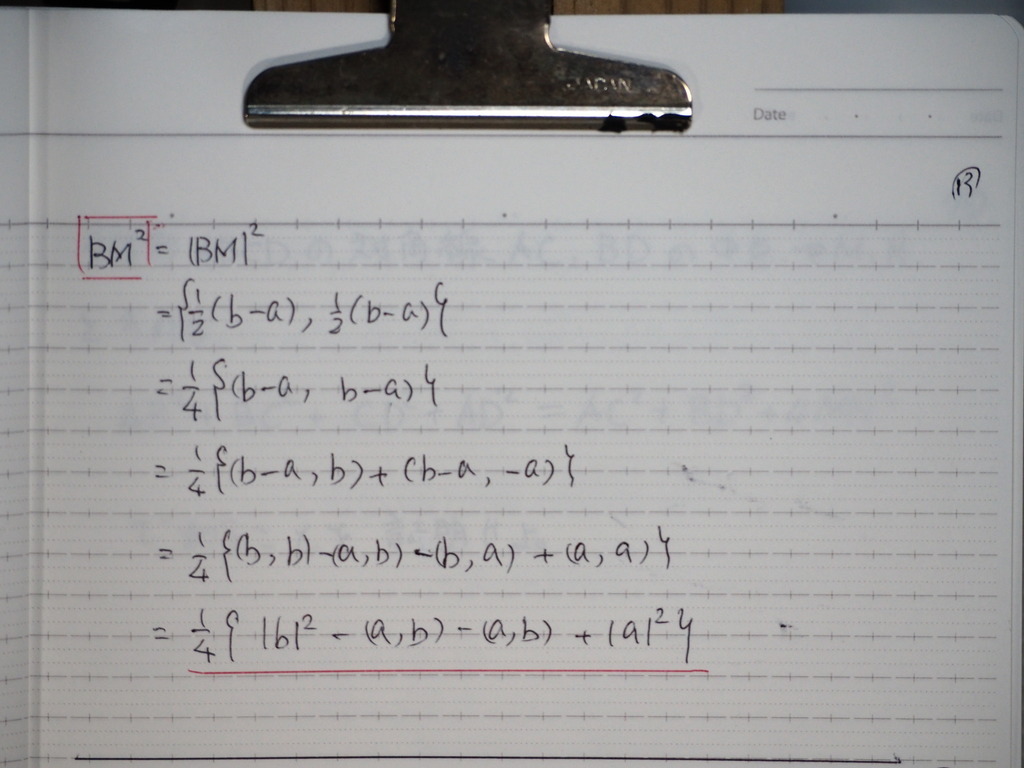 JAPAN
Date
⑬
BM² = |BM|²
= {½(b-a), ½(b-a)}
= ¼{(b-a, b-a)}
= ¼{(b-a, b) + (b-a, -a)}
= ¼{(b, b) - (a, b) - (b, a) + (a, a)}
= ¼{|b|² - (a, b) - (a, b) + |a|²}